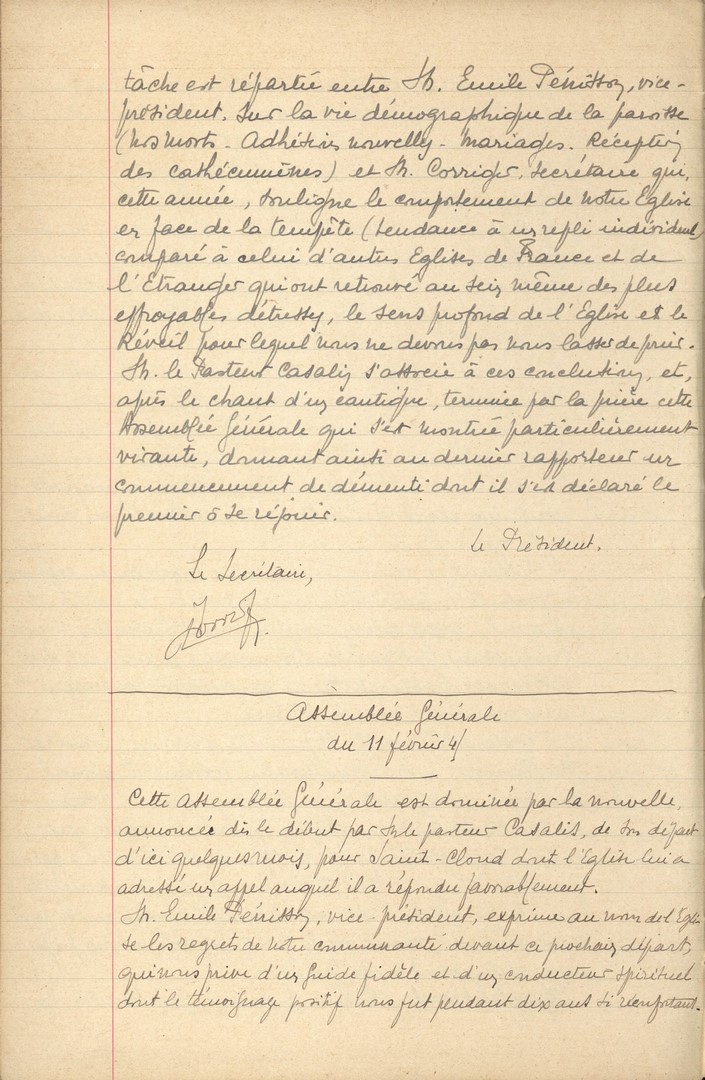 tâche est répartie entre M. Emile Pénisson, vice-
président, sur la vie démographique de la paroisse
(Nos morts - Adhésions nouvelles - Mariages. Réception
des cathécumènes) et M. Corriger, secrétaire qui,
cette année, souligne le comportement de notre Eglise
en face de la tempête (tendance à un repli individuel)
comparé à celui d'autres Eglises de France et de
l'Etranger qui ont retrouvé au sein même des plus
effroyables détresses, le sens profond de l'Eglise et le
Réveil pour lequel nous ne devons pas nous lasser de prier.
M. le Pasteur Casalis s'associe à ces conclusions, et,
après le chant d'un cantique, termine par la prière cette
Assemblée Générale qui s'est montrée particulièrement
vivante, donnant ainsi au dernier rapporteur un
commencement de démenti dont il s'est déclaré le
premier à se réjouir.
Le Président,
Le Secrétaire,
Assemblée Générale
du 11 février 41
Cette Assemblée Générale est dominée par la nouvelle,
annoncée dès le début par M. le pasteur Casalis, de son départ
d'ici quelques mois, pour Saint-Cloud dont l'Eglise lui a
adressé un appel auquel il a répondu favorablement.
M. Emile Pénisson, vice-président, exprime au nom de l'Egli-
se les regrets de notre communauté devant ce prochain départ,
qui nous prive d'un guide fidèle et d'un conducteur spirituel
dont le témoignage positif nous fut pendant dix ans si réconfortant.